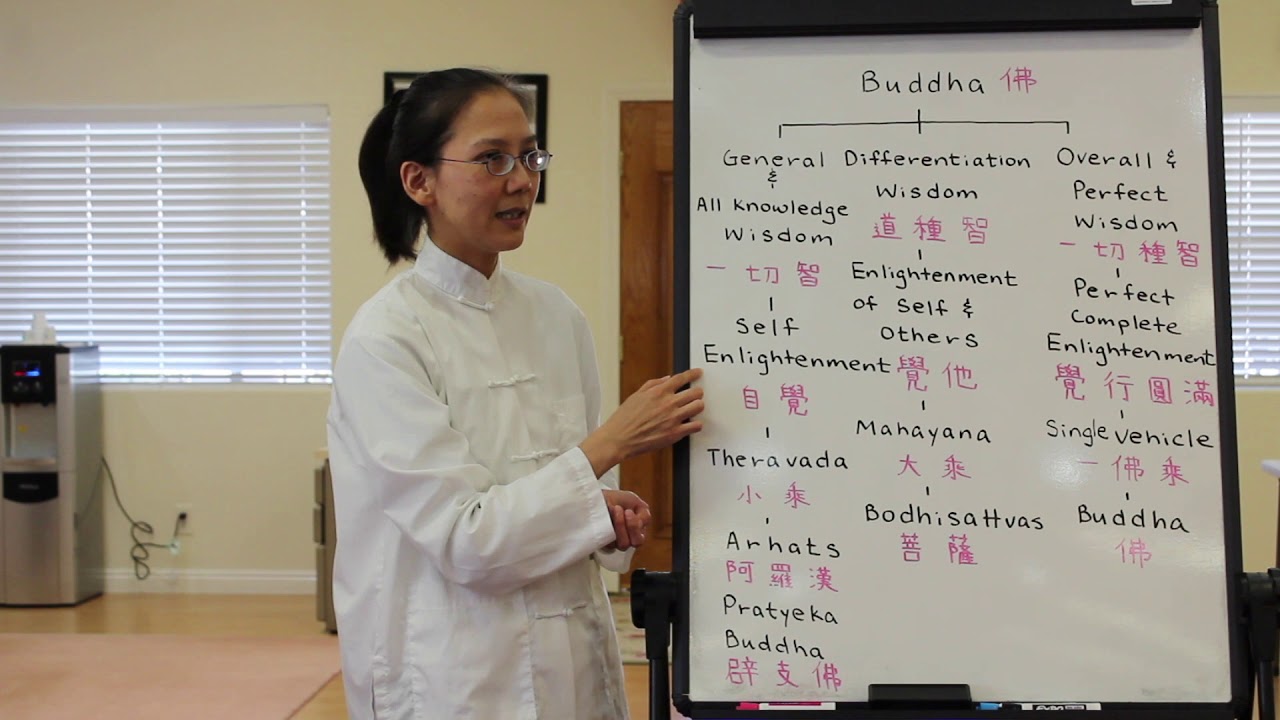 Buddha 佛
General
&
All Knowledge
Wisdom
一切智
Self
Enlightenment
自覺
Theravada
小乘
Arhats
阿羅漢
Pratyeka
Buddha
辟支佛
Differentiation
Wisdom
道種智
Enlightenment
of Self &
Others
覺他
Mahayana
大乘
Bodhisattvas
菩薩
Overall &
Perfect
Wisdom
一切種智
Perfect
Complete
Enlightenment
覺行圓滿
Single Vehicle
一佛乘
Buddha
佛